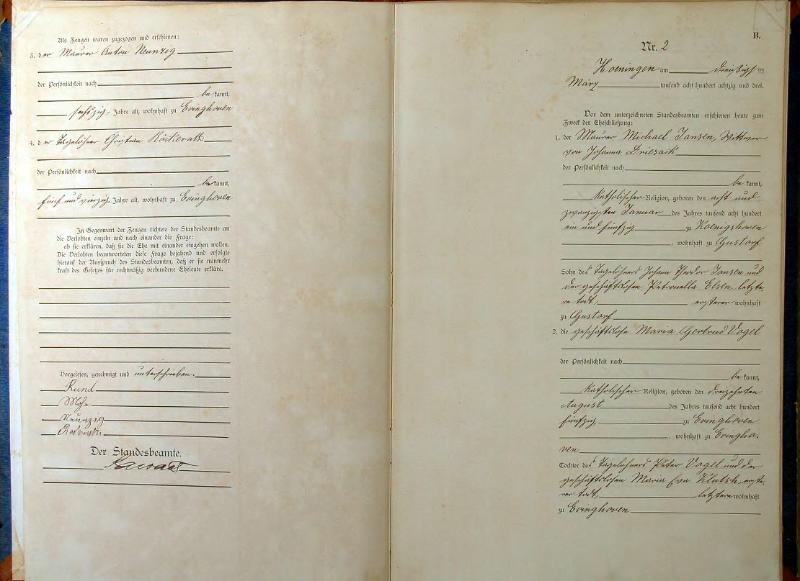 Als Zeugen waren zugezogen und erschienen:
3. der Maurer Anton Neunzig
der Persönlichkeit nach
be kannt,
sechzig Jahre alt, wohnhaft zu Evinghoven
4. der Tagelöhner Christian
der Persönlichkeit nach
be kannt,
fünf und vierzig Jahre alt, wohnhaft zu Evinghoven
In Gegenwart der Zeugen richtete der Standesbeamte an
die Verlobten einzeln und nach einander die Frage:
ob sie erklären, daß sie die Ehe mit einander eingehen wollen.
Die Verlobten beantworteten diese Frage bejahend und erfolgte
hierauf der Ausspruch des Standesbeamten, daß er sie nunmehr
kraft des Gesetzes für rechtmäßig verbundene Eheleute erkläre.
Vorgelesen, genehmigt und unterschrieben.
Neunzig
Der Standesbeamte.
B.
Nr. 2
Hoeningen am dreißigsten
März tausend acht hundert achtzig und drei.
Vor dem unterzeichneten Standesbeamten erschienen heute zum
Zweck der Eheschließung:
1. der Maurer Michael Jansen, Wittwer
von Johanna
der Persönlichkeit nach
be kannt,
katholischer Religion, geboren den acht und
zwanzigsten Januar des Jahres tausend acht hundert
ein und fünfzig zu Koenigshoven
, wohnhaft zu Gustorf
Sohn des Tagelöhners Johann Theodor Jansen und
der geschäftslosen Petronella Elsen, letzte
re todt, ersterer wohnhaft
zu Gustorf
2. die geschäftslose Maria Gertrud Vogel
der Persönlichkeit nach
be kannt,
katholischer Religion, geboren den dreizehnten
August des Jahres tausend acht hundert
fünfzig zu Evinghoven
, wohnhaft zu Evingho-
ven
Tochter des Tagelöhners Peter Vogel und der
geschäftslosen Maria Eva, erste-
rer todt, letztere wohnhaft
zu Evinghoven